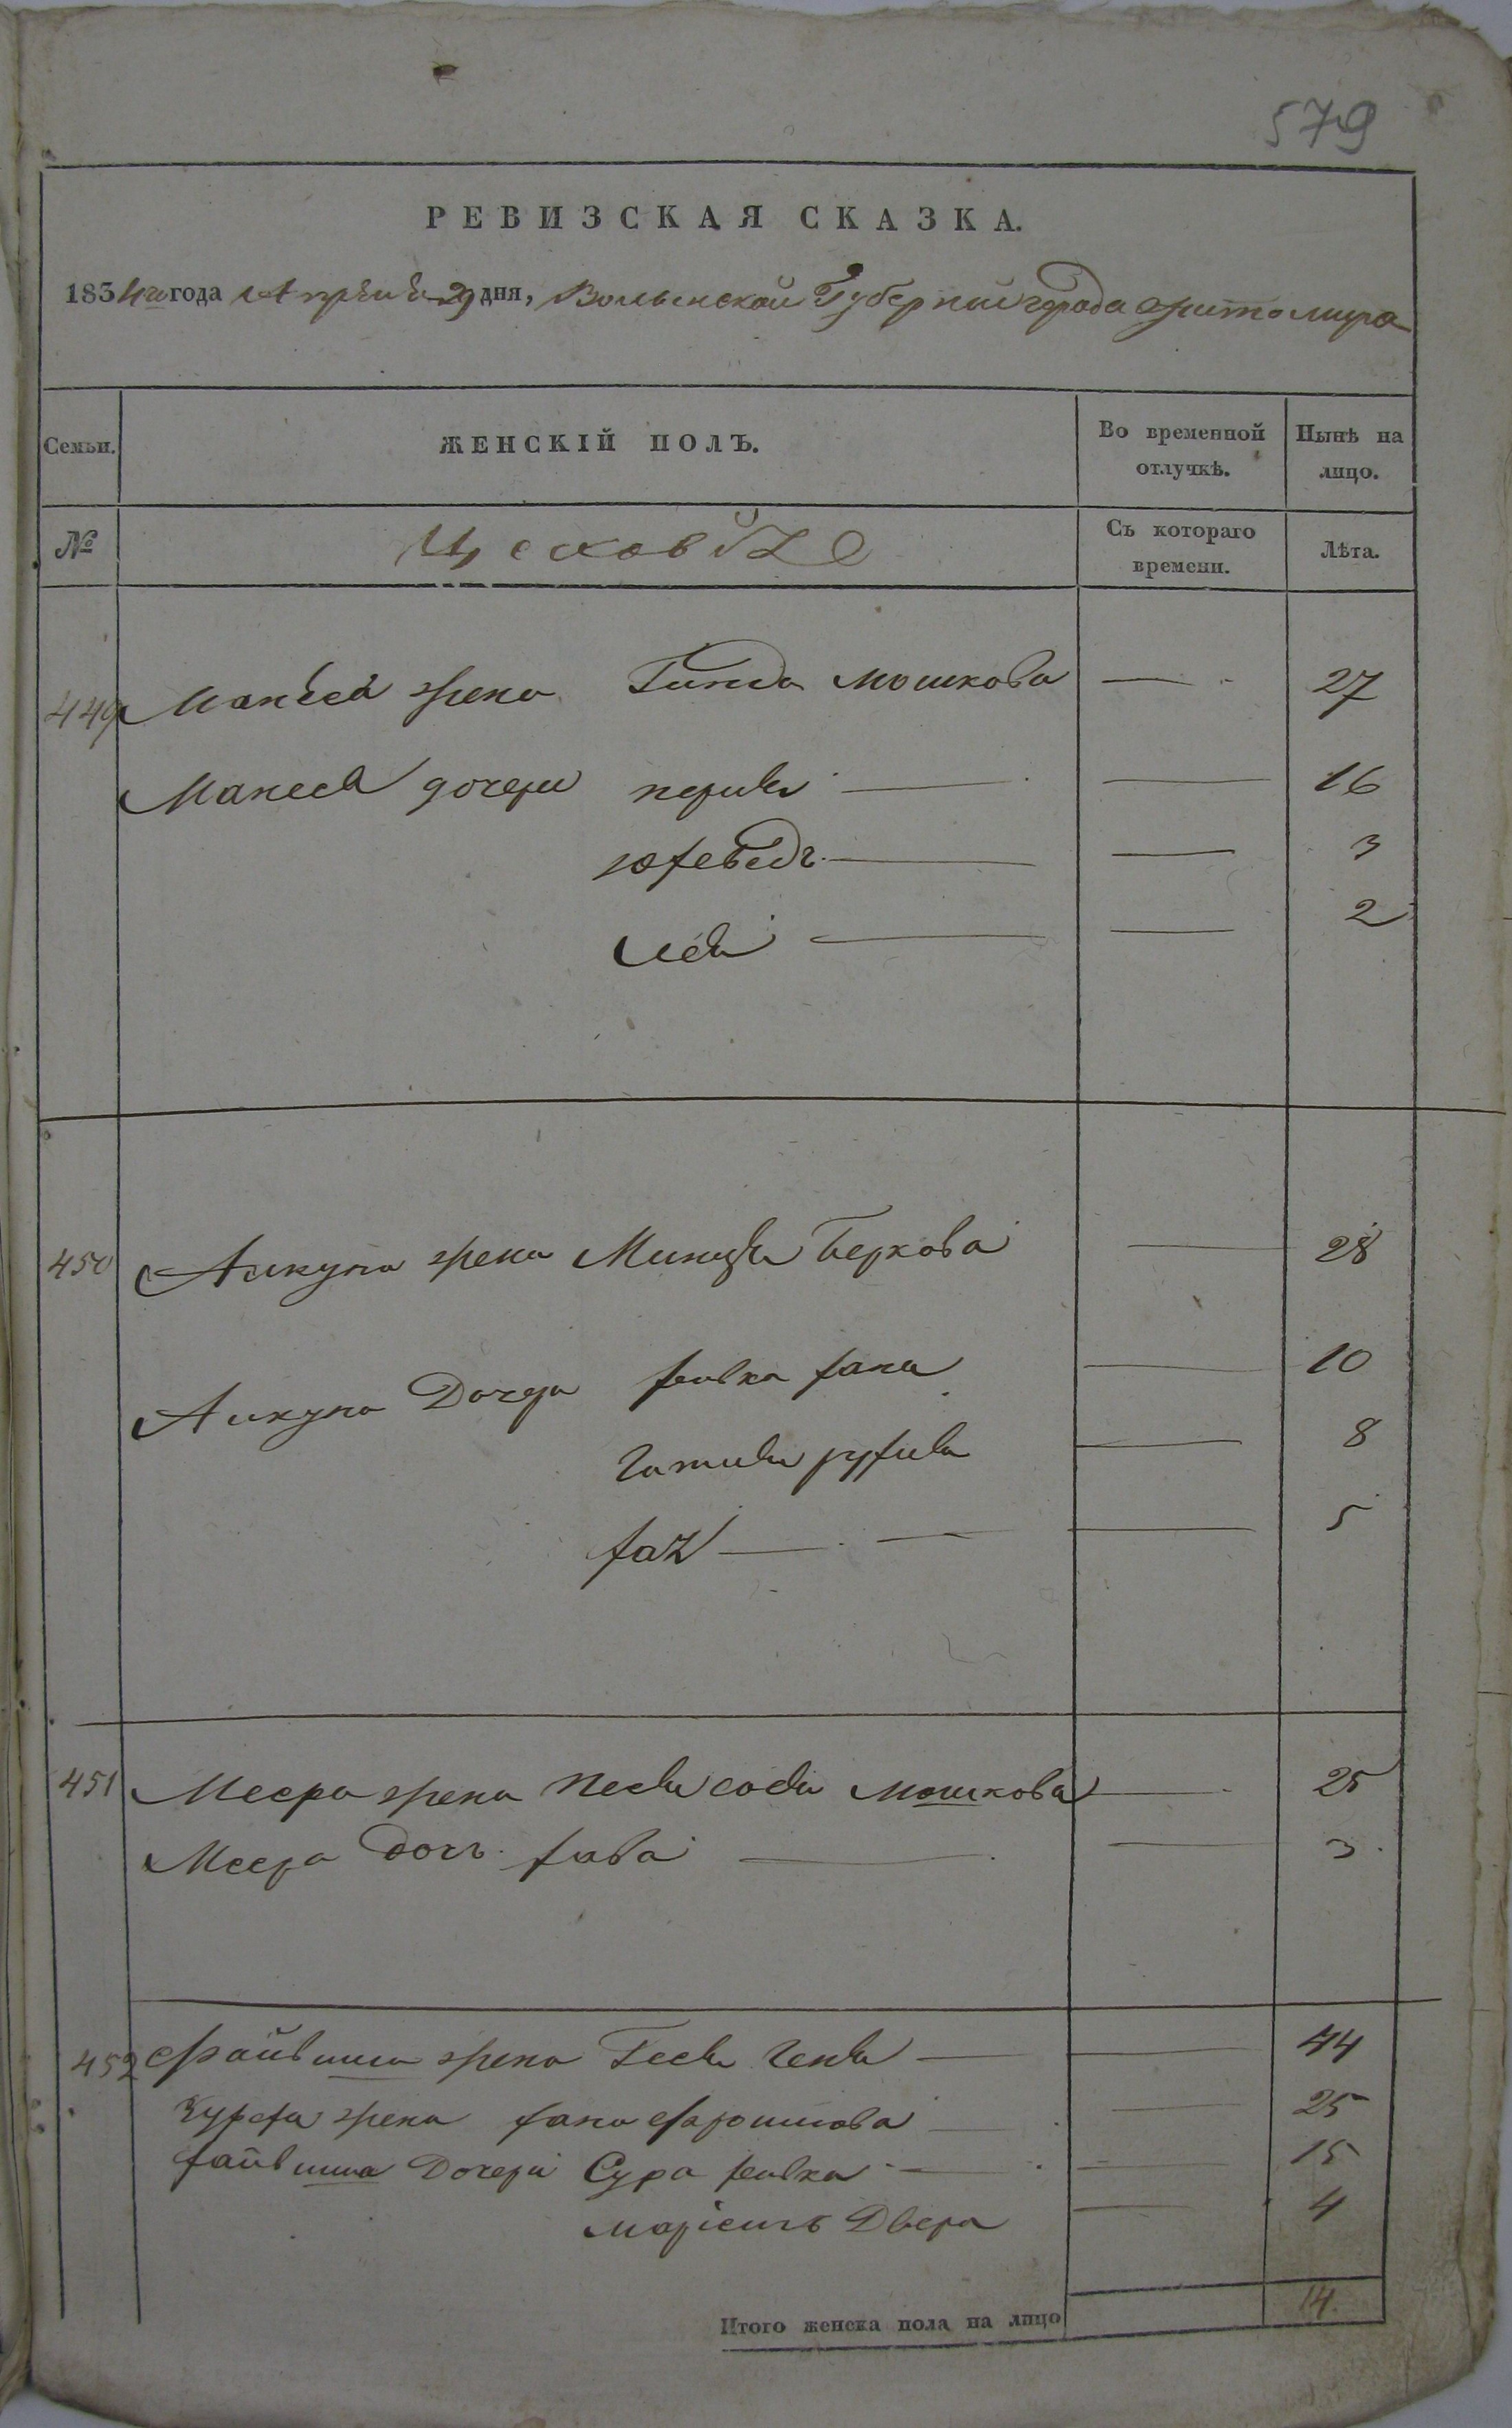 579
РЕВИЗСКАЯ СКАЗКА.
1834го года Апреля 29 дня, Волынской Губернии города Житомира
Семьи. ЖЕНСКІЙ ПОЛЪ. Во временной отлучкѣ. Нынѣ на лицо.
№ Съ котораго времени. Лѣта.
449 жена Гинда Мошкова — 27
дочери перля — — 16
хебедъ — — 3
— — 2
450 жена Беркова — 28
Дочери ривка хана — 10
— 8
— — 5
451 Меера жена Песя сося Мошкова — 25
Меера дочь хава — — 3
452 Файвиша жена Геся Геня — 44
жена хана — 25
файвиша Дочери Сура ривка — — 15
Двера — 4
Итого женска пола на лицо 14.